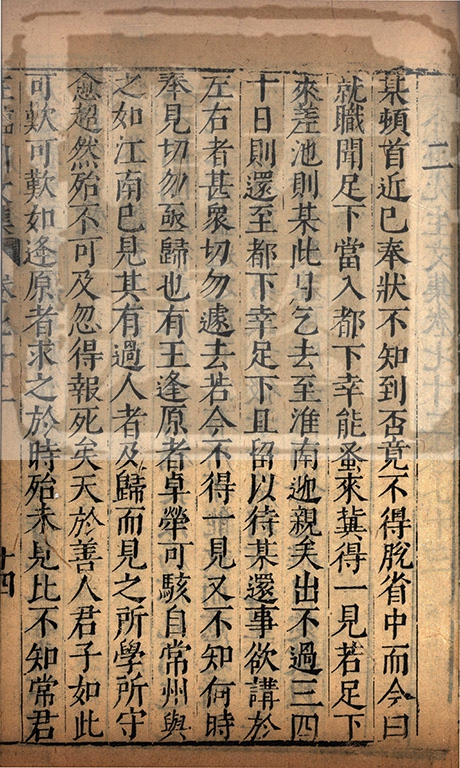 某頓首近已奉狀不知到否竟不得脫省中而今日
二
就職聞足下當入都下幸能蚤來兾得一見若足下
來差池則某此月乞去至淮南迎親矣出不過三四
十日則還至都下幸足下且留以待某還事欲講於
左右者甚衆切勿遽去若今不得一見又不知何時
奉見切勿亟歸也有王逢原者卓犖可駭自常州與
之如江南已見其有過人者及歸而見之所學所守
愈超然殆不可及忽得報死矣天於善人君子如此
可歎可歎如逢原者求之於時殆未見比不知常君
十四